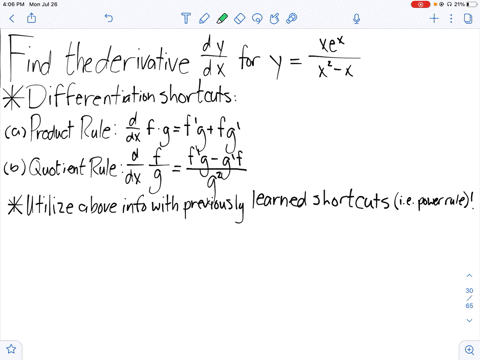 4:06 PM Mon Jul 26
21%
Find the derivative dy/dx for y = xeˣ/(x² - x)
* Differentiation shortcuts:
(a) Product Rule: d/dx f·g = f'g + fg'
(b) Quotient Rule: d/dx f/g = (f'g - g'f)/g²
* Utilize above info with previously learned shortcuts (i.e. power rule)!
30
/
65